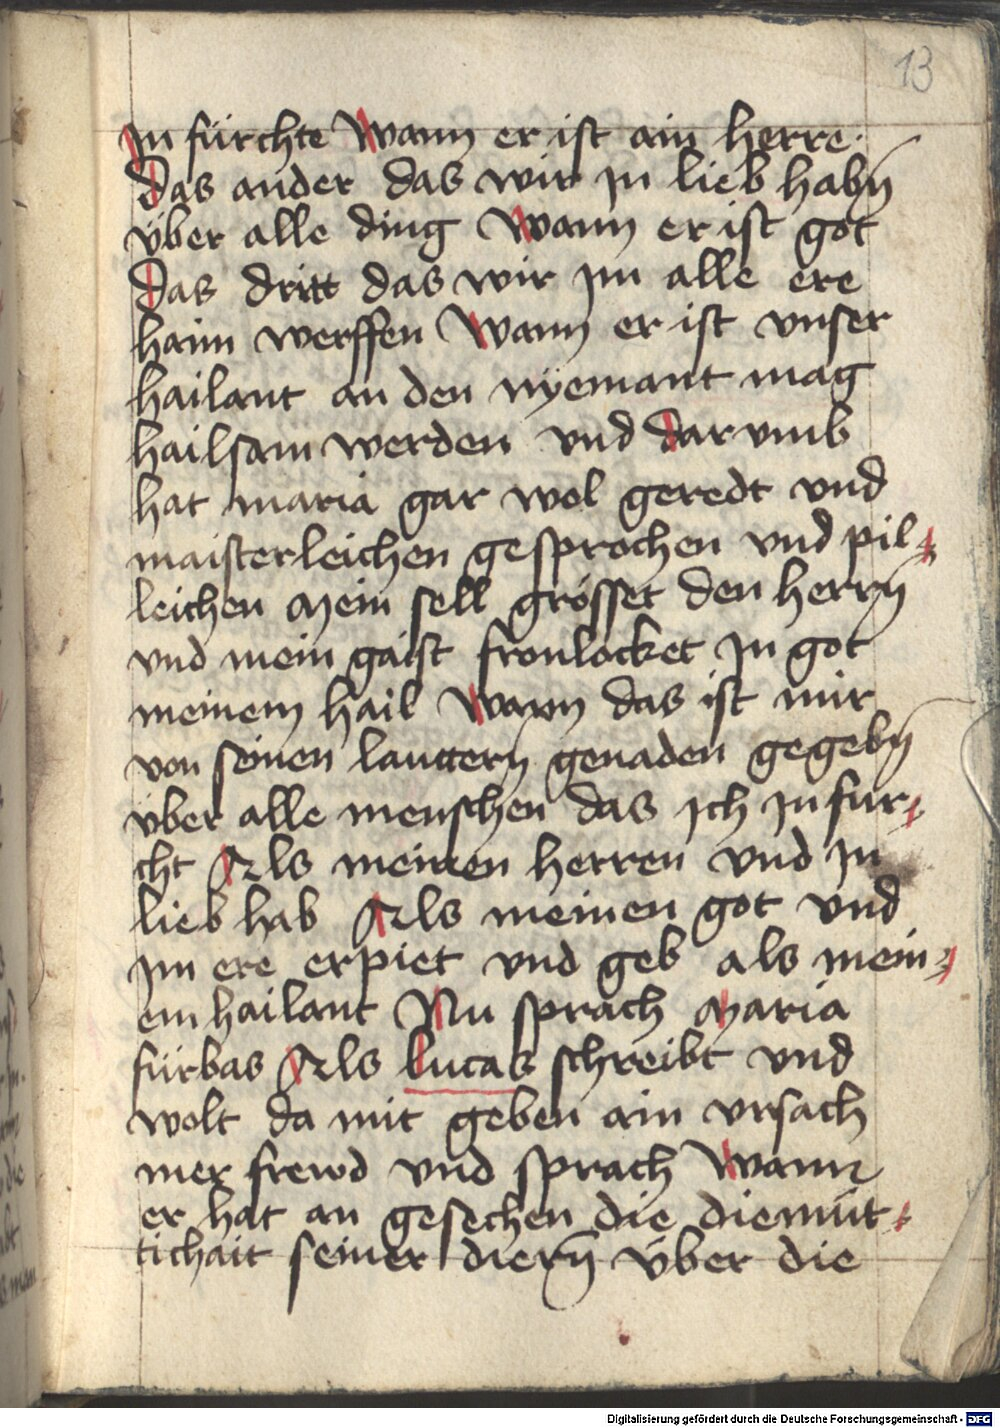 13
In fürchte Wann er ist ain herre·
Das ander das wir in lieb habn̄
über alle ding Wann er ist got
Das dritt das wir im alle ere
haim werffen Wann er ist vnser
hailant an den nyemant mag
hailsam werden vnd darvmb
hat maria gar wol geredt vnd
maisterleichen gesprochen vnd pil⸗
leichen Mein sell grösset den herrn̄
vnd mein gaist fronlocket In got
meinem hail Wann das ist mir
von seinen lauttern̄ genaden gegebn̄
über alle menschen das ich in fur⸗
cht Als meinen herren vnd in
lieb hab Als meinen got vnd
im ere erpiet vnd geb als mein⸗
em hailant Nu sprach Maria
fürbas Als lucas schreibt vnd
wolt da mit geben ain vrsach
mer frewd vnd sprach Wann
er hat an gesechen die diemüt⸗
tichait seiner diern̄ über die
Digitalisierung gefördert durch die Deutsche Forschungsgemeinschaft - DFG